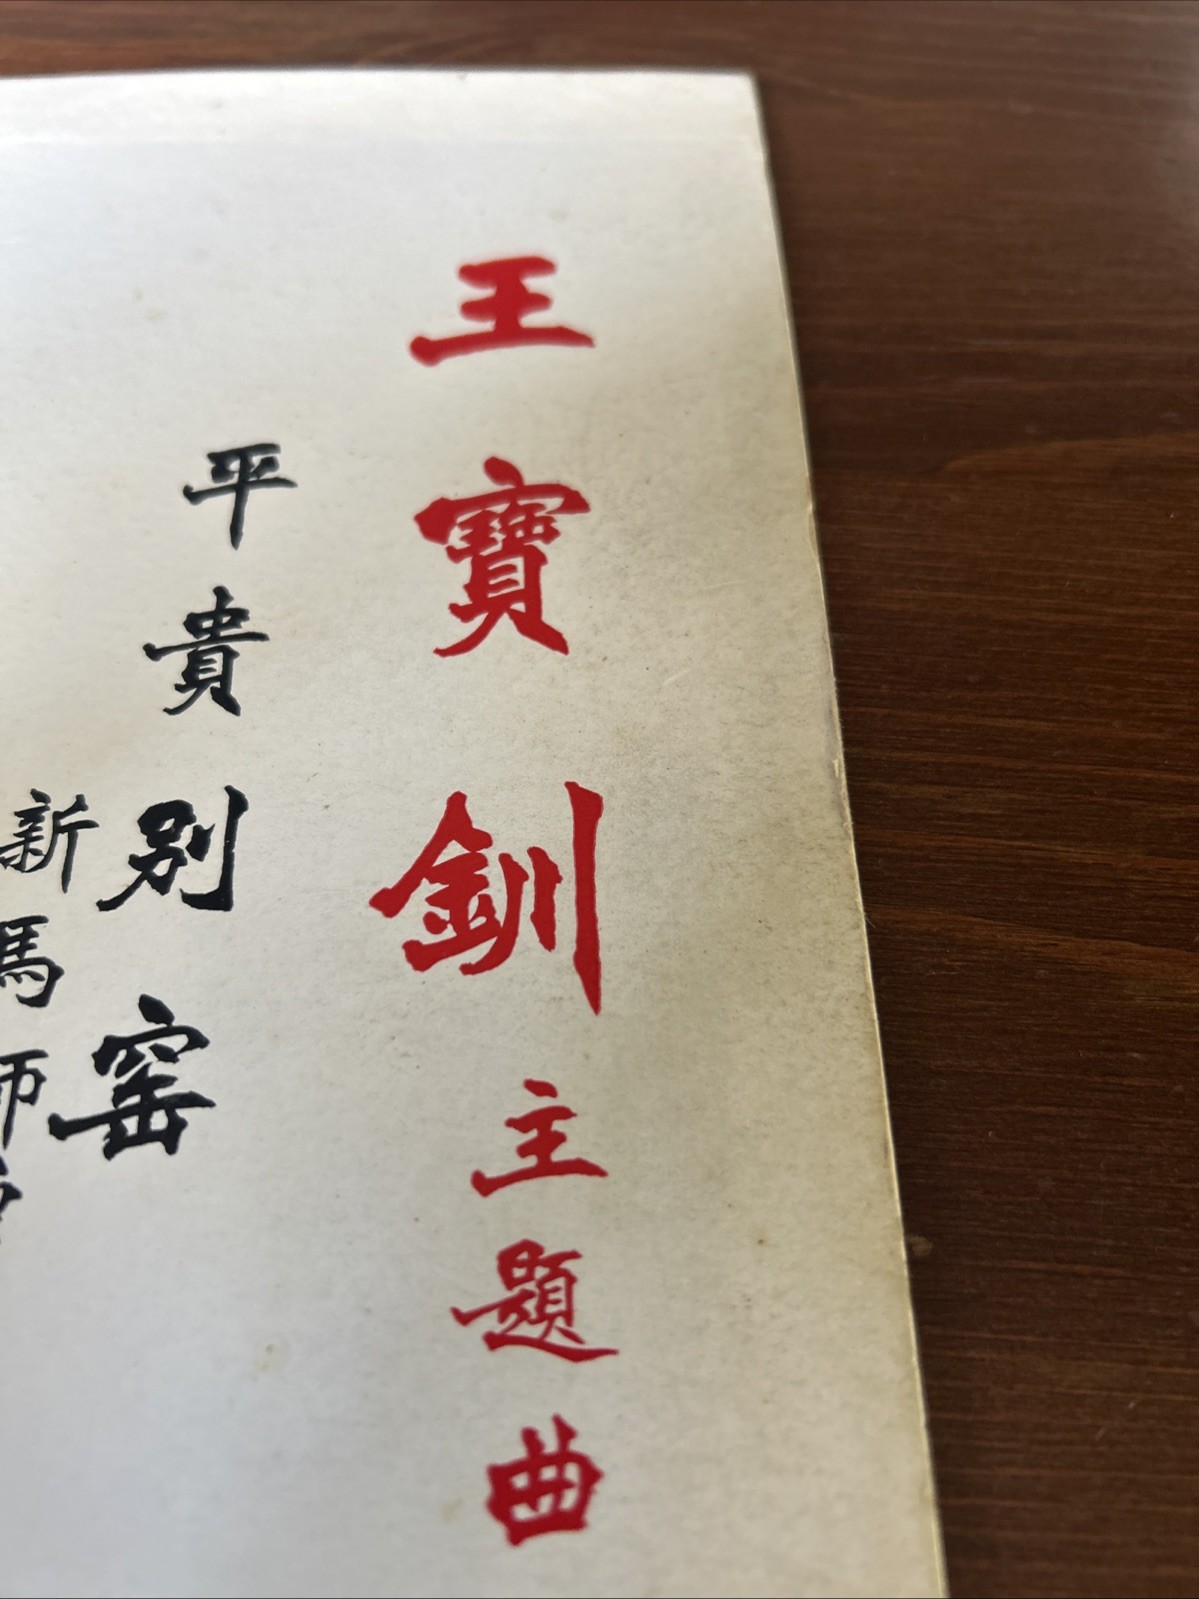 王寶釧主題曲
平貴別窑
新馬師